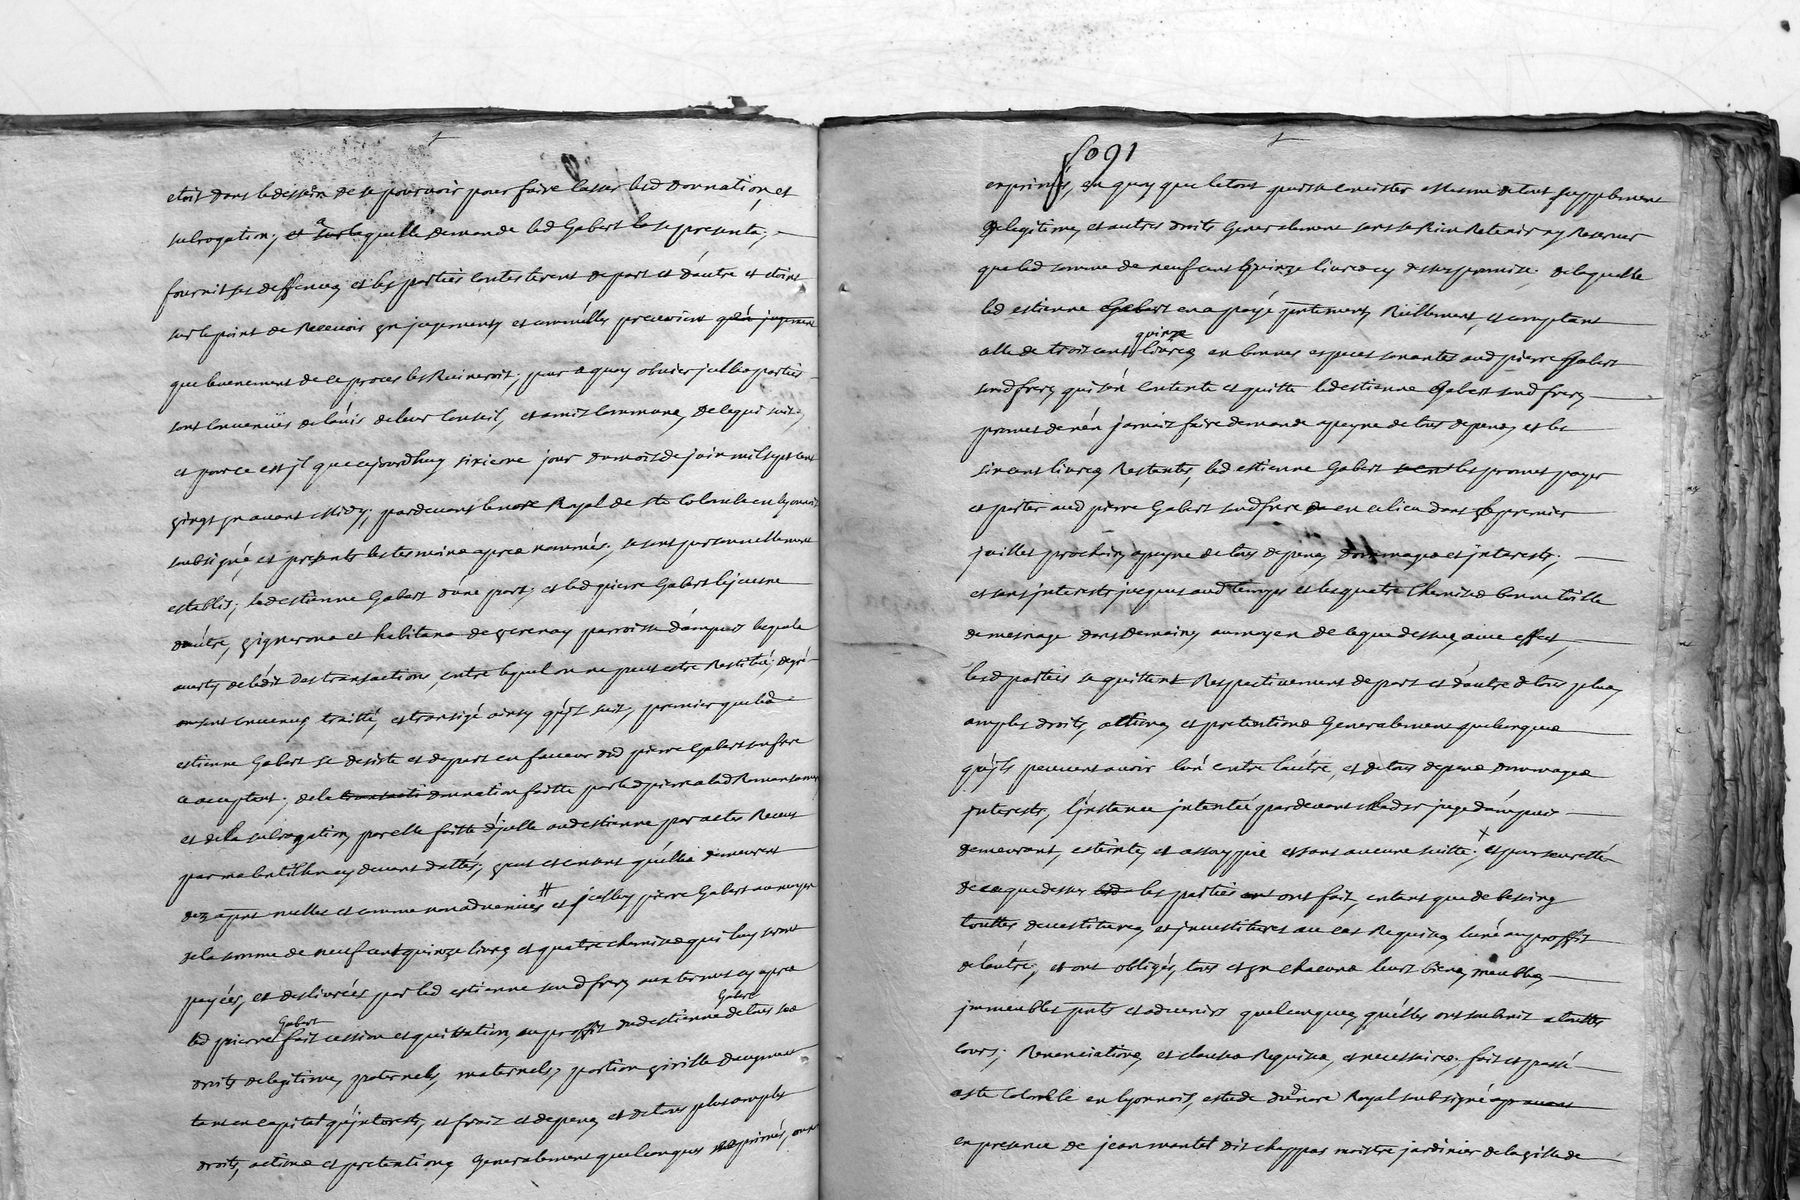 etoit dans le dessein de se pourvoir pour faire casser led donnation, et
subrogation, et sur laquelle demande led Gabert se presenta,
fournit ses deffences, et les parties contesterent de part et d'autre et etoint
sur le point de recevoir jugement, et comm'elles prevoient qu'en jugement
que levenement de ce proces les Ruineroit, pour a quoy obvier jcelles parties
sont convenües de lavis de leur conseil, et amis communs, de ce qui suit,
et pour ce est jl que cejourdhuy sixieme jour du mois de juin mil sept cent
vingt un avant midy, pardevant le nore Royal de ste Colombe en lyonnois
soubsigné, et presents les tesmoins apres nommés, se sont personnellement
establis, led estienne Gabert d'une part, et led pierre Gabert le jeune
d'autre, vignerons et habitans de verenay parroisse dampuis lesquels
avertis de lédit des transactions, contre lequel on ne peut estre Restitué, de gré
ont convenus, traitté, et transigé ainsy qu'jl suit, premier que led
estienne Gabert se desiste et depart en faveur dud pierre Gabert son frere
acceptant, de la transacti donnation faitte par led pierre a lad Romansom
et de la subrogation, par elle faitte d'jcelle aud estienne par actes Receus
par me devant dattés, veut et consent qu'elles demeurent
dez a pnt nulles et comme non advenües et jcelluy pierre Gabert au moyen
de la somme de neuf cent quinze livres et quatre chemises qui luy seront
payées, et deslivrées par led estienne sond frere aux termes cy apres
led pierre Gabert fait cession et quittation, au proffit dud estienne Gabert de tous ses
droits de legitime, paternels, maternels, portion virille d'augment
tant en capital qu'jnterests, et frais et depens, et de tous plus amples
droits, actions et pretentions Generalement quelconques exprimés, ou non
fo 91
exprimés, en quoy que le tout puisse consister et mesme de tout supplement
de legitime, et autres droits Generalement sans se Rien Retenir ny Reserver
que led somme de neuf cent quinze livres cy dessus promise, de laquelle
led estienne Gabert en a payé pntement, Riellement, et comptant
celle de trois cent quinze livres, en bonnes especes sonantes aud pierre Gabert
sond frere, qui s'en contente et quitte led estienne Gabert sond frere,
promet de n'en jamais faire demande a peyne de tous depens, et les
six cent livres Restants, led estienne Gabert sera les promet payer
et porter aud pierre Gabert sond frere en ce lieu dans le premier
juillet prochain, a peyne de tous depens, dommages et jnterests,
et sans jnterests jusques aud temps et les quatre chemises bonne toille
de mesnage dans demain, au moyen de ce que dessus, avec effect,
lesd parties se quittent Respectivement de part et d'autre de tous plus
amples droits, actions, et pretentions Generalement quelconques
qu'jls peuvent avoir lun contre lautre, et de tous depens dommages
jnterests, l'jnstance jntentée pardevant judge dampuis
demeurant, esteinte, et assoupie et sans aucune suitte, + et pour seuretté
de ce que dessus led les parties ont fait, en tant que de besoing
touttes devestitures, et jnvestitures au cas Requises, lun au proffit
de lautre, et ont obligés, tous et un chacuns leurs biens, meubles,
jmmeubles pnts et advenirs quelconques, qu'elles ont soubmis a touttes
cours, Renonciations, et clauses Requises, et necessaires, fait et passé
a ste Colombe en lyonnois, estude dud nore Royal subsigné ap avant
en presence de jean mantel dit chappas maistre jardinier de la ville de